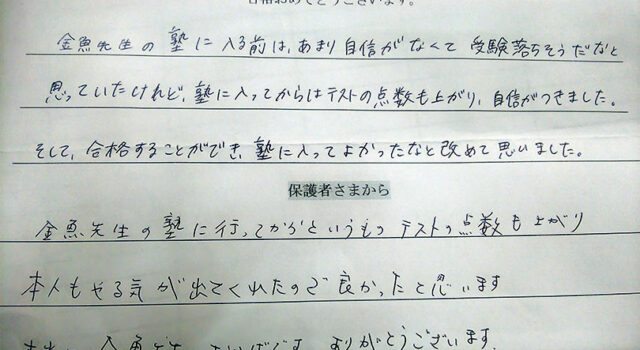 合格おめでとうございます。
金魚先生の塾に入る前は、あまり自信がなくて受験落ちそうだなと
思っていたけれど、塾に入ってからはテストの点数も上がり、自信がつきました。
そして、合格することができ、塾に入ってよかったなと改めて思いました。
保護者さまから
金魚先生の塾に行ってからというもの テストの点数も上がり
本人もやる気が出てくれたので良かったと思います
ありがとうございます。